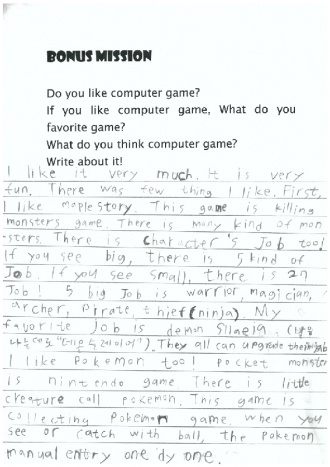 BONUS MISSION
Do you like computer game?
If you like computer game, What do you
favorite game?
What do you think computer game?
Write about it!
I like it very much. It is very
fun, There was few thing I like. First,
I like maple story. This game is killing
monsters game. There is many kind of mon
-sters. There is character's Job too!
If you see big, there is 5 kind of
Job. If you see small, there is 27
Job! 5 big Job is warrior, magician,
archer, pirate, thief(ninja). My
favorite Job is demon
They all can upgrade their job
I like Pokemon too! pocket monster
is nintendo game There is little
creature call pokemon. This game is
collecting Pokemon game when you
see or catch with ball, the Pokemon
manual entry one dy one.